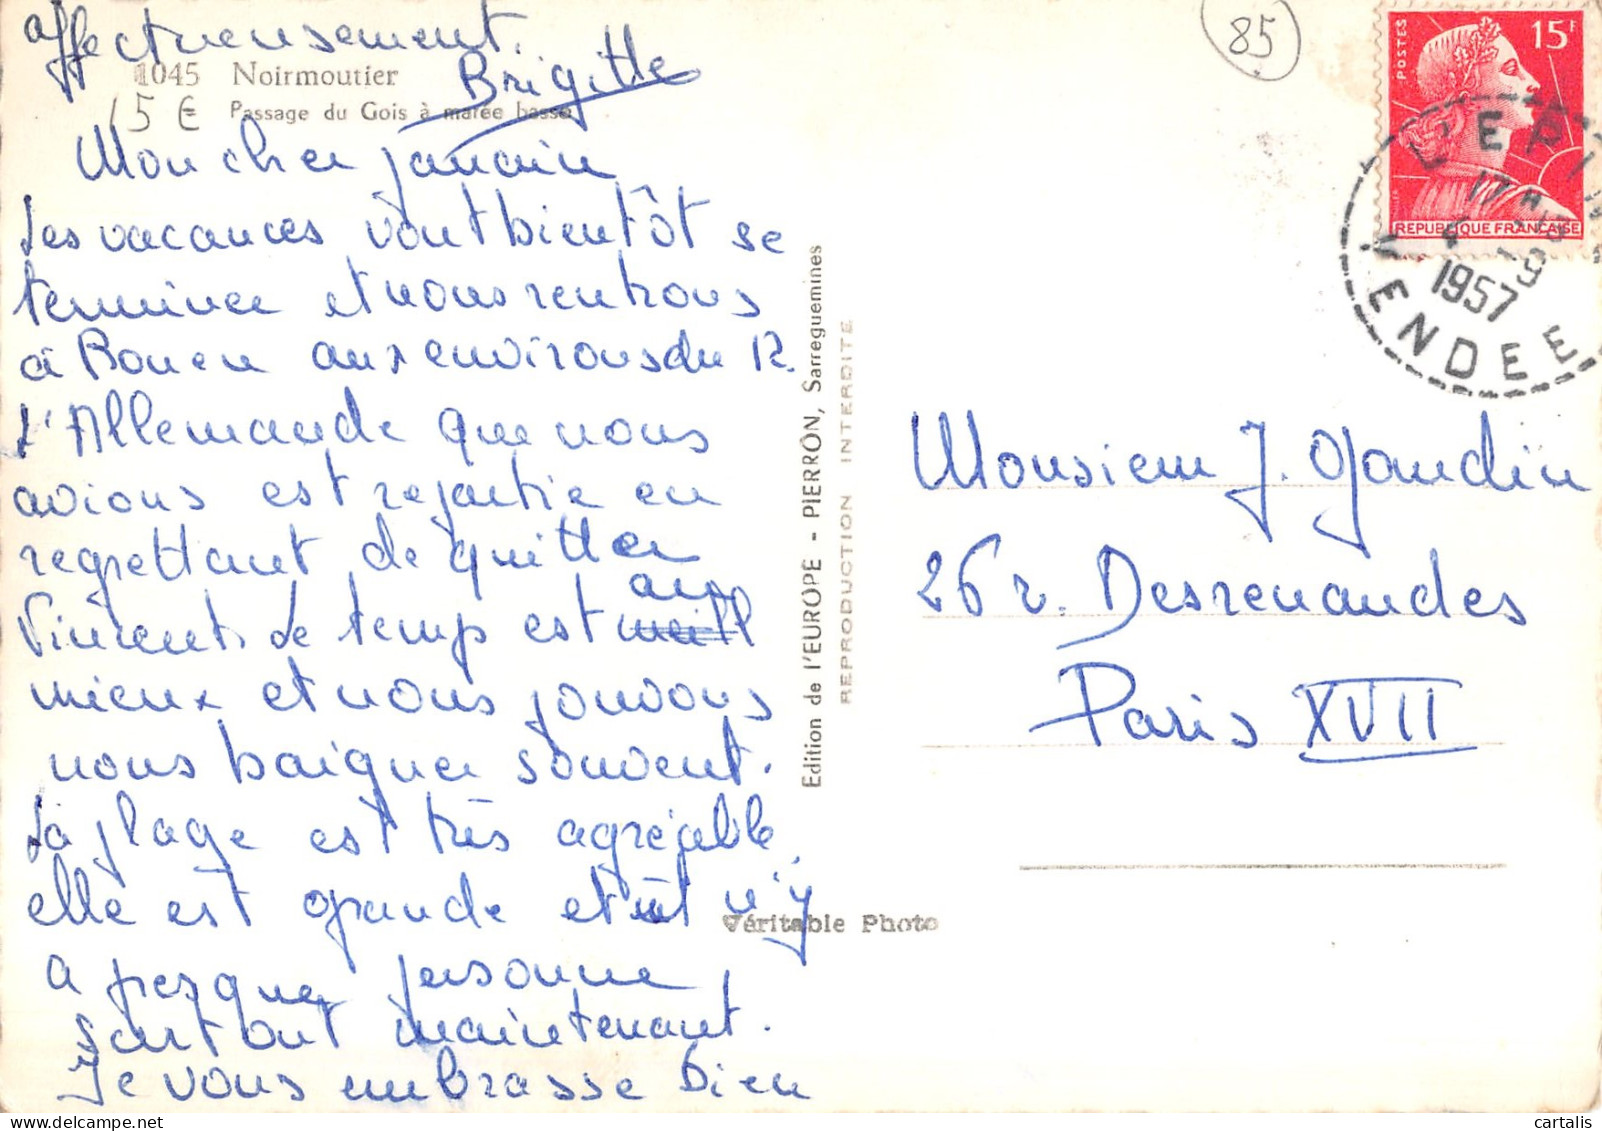 affectueusement.
Brigitte
1045 Noirmoutier
15 €
Passage du Gois à marée basse
Mon cher parrain
Les vacances vont bientôt se
terminer et nous rentrons
à Rouen aux environs du 12.
L'Allemande que nous
avions est repartie en
regrettant de quitter
Vincent. Le temps est au
mieux et nous pouvons
nous baigner souvent.
La plage est très agréable,
elle est grande et il n'y
a presque personne
surtout maintenant.
Je vous embrasse bien
Edition de l'EUROPE - PIERRON, Sarreguemines
REPRODUCTION INTERDITE
Véritable Photo
85
POSTES
15F
REPUBLIQUE FRANÇAISE
L'EPINE
17 H
4 -9
1957
VENDEE
Monsieur J. Gaudin
26 r. Desrenaudes
Paris XVII
cartalis